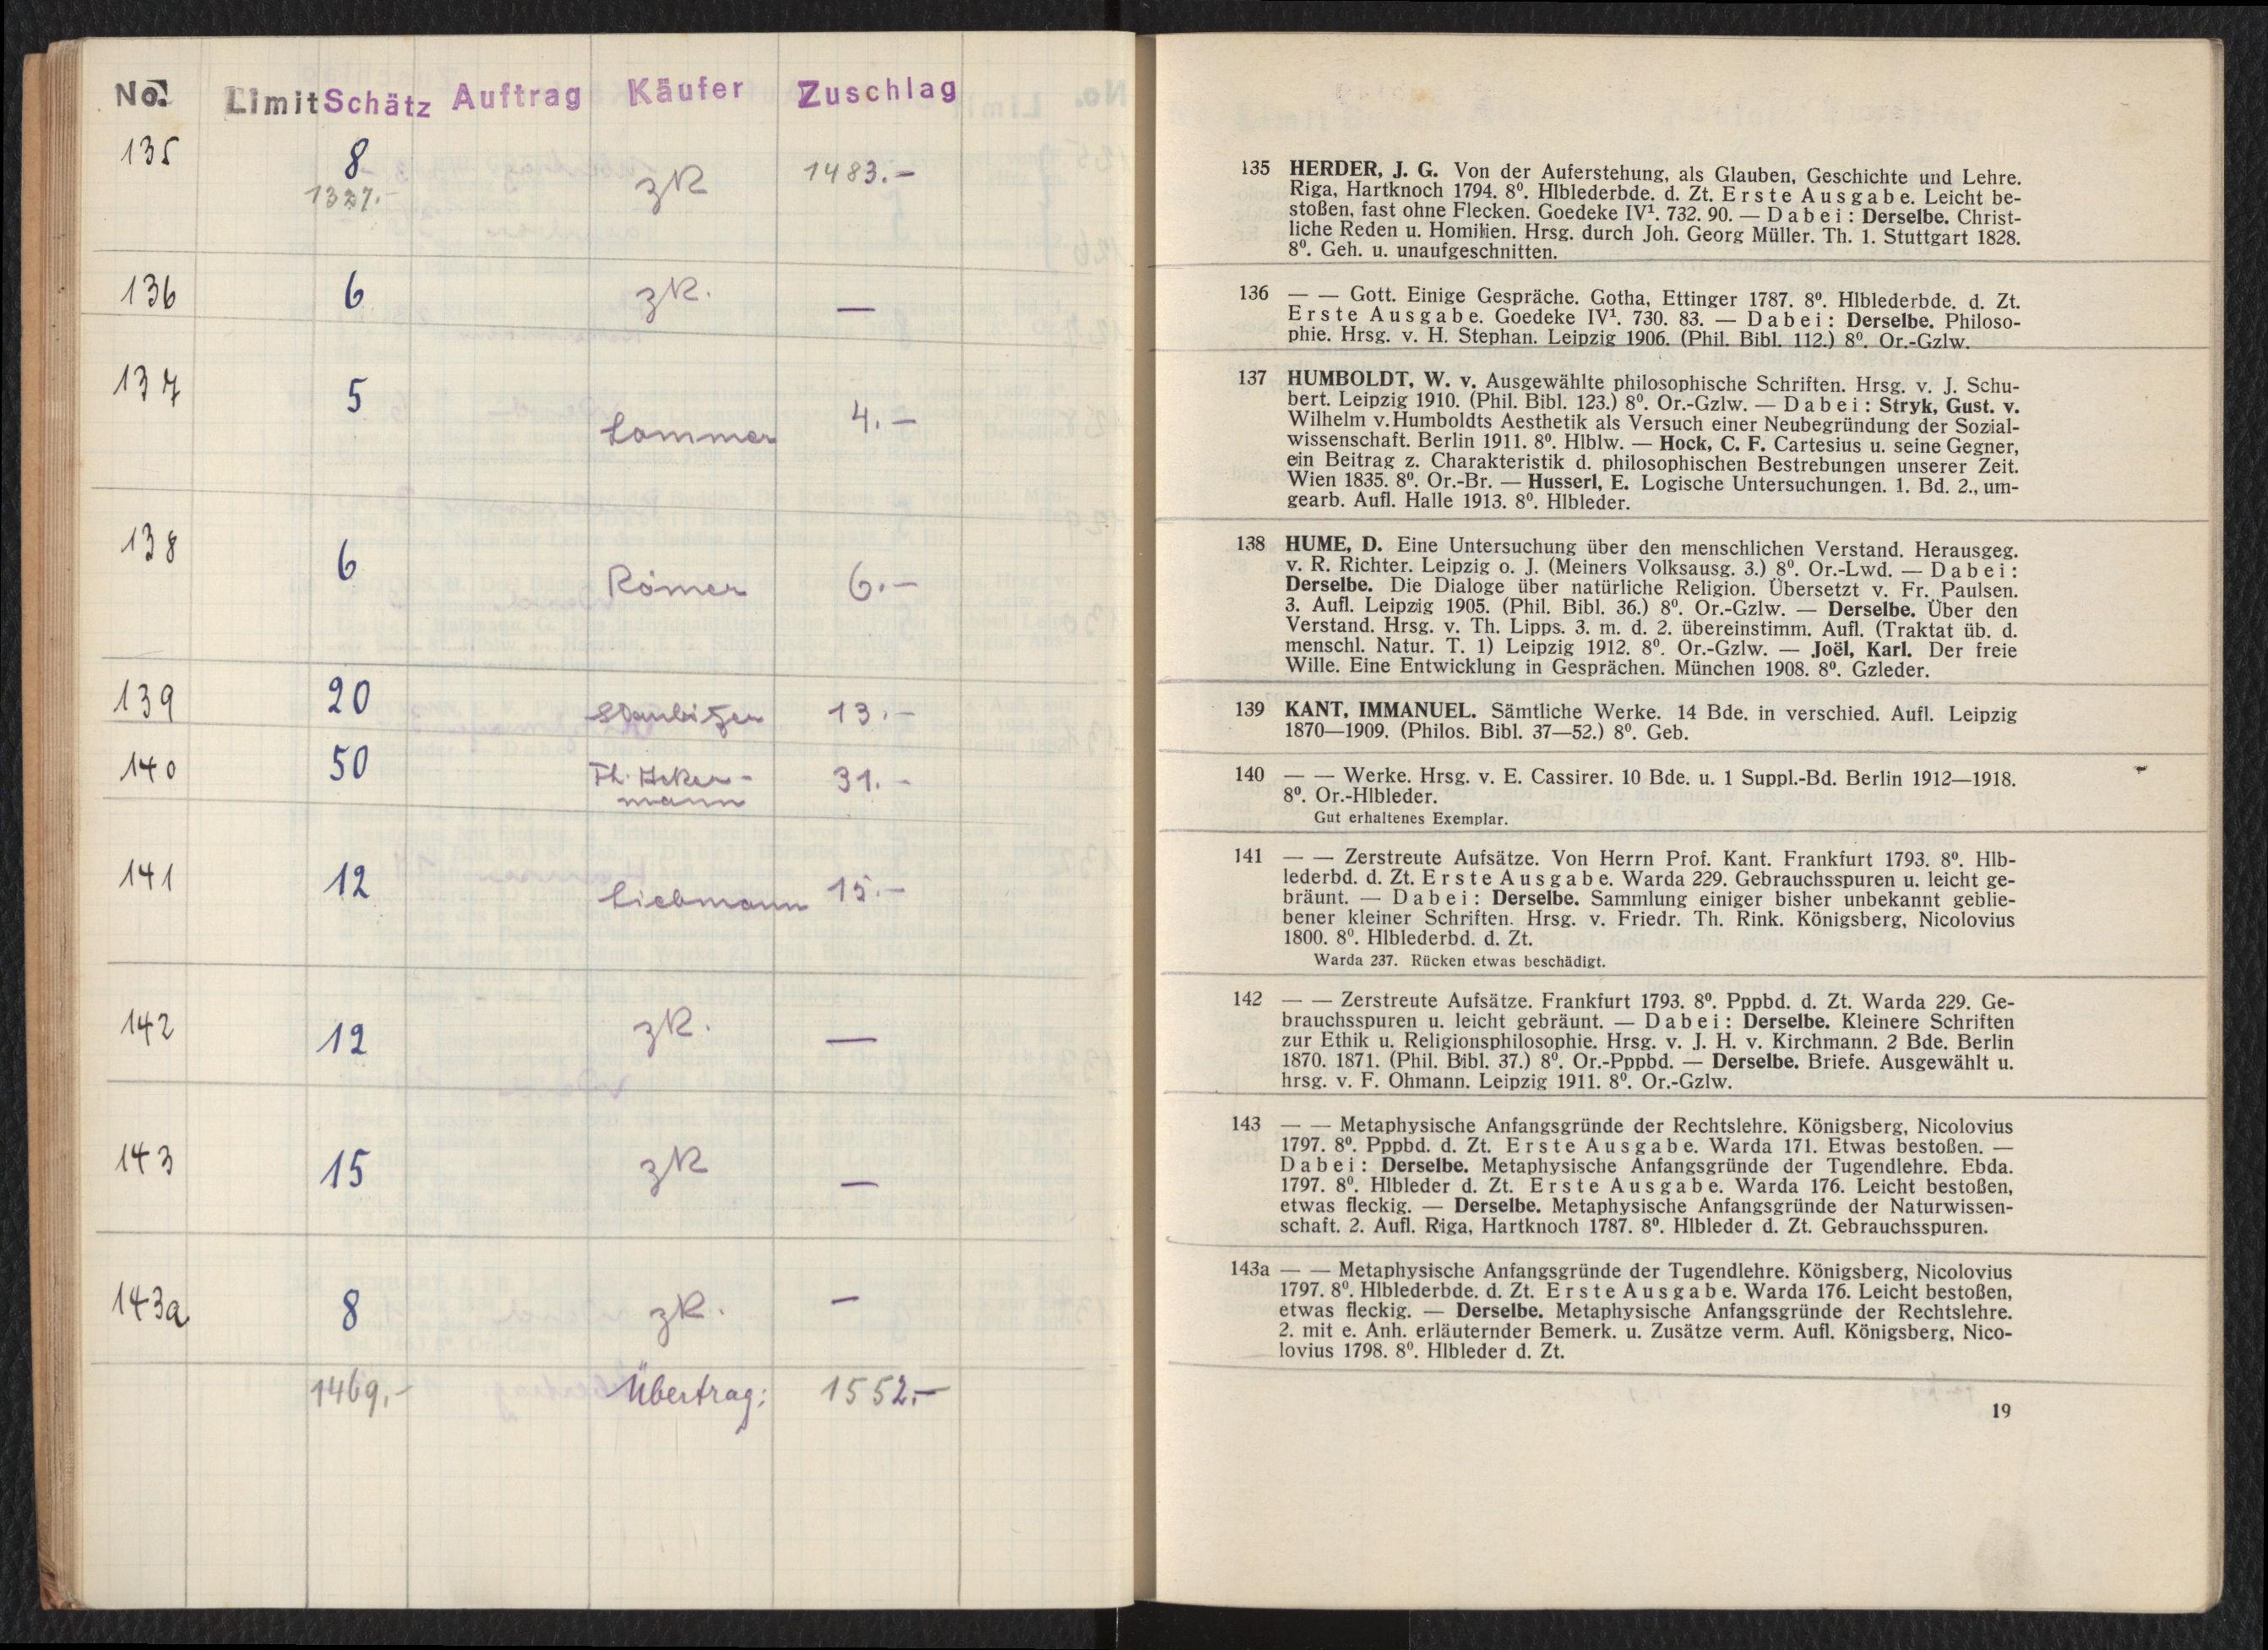 No. Limit Schätz Auftrag Käufer Zuschlag
135 8 zR 1483.—
1327.-
136 6 zR. —
137 5 Lammer 4.—
138 6 Römer 6.—
139 20 13.—
140 50 Th. Acker-
mann 31.—
141 12 Liebmann 15.—
142 12 zR. —
143 15 zR —
143a 8 zR. —
1469,- Übertrag: 1552.—
135 HERDER, J. G. Von der Auferstehung, als Glauben, Geschichte und Lehre.
Riga, Hartknoch 1794. 8⁰. Hlblederbde. d. Zt. Erste Ausgabe. Leicht be-
stoßen, fast ohne Flecken. Goedeke IV¹. 732. 90. — Dabei: Derselbe. Christ-
liche Reden u. Homilien. Hrsg. durch Joh. Georg Müller. Th. 1. Stuttgart 1828.
8⁰. Geh. u. unaufgeschnitten.
136 — — Gott. Einige Gespräche. Gotha, Ettinger 1787. 8⁰. Hlblederbde. d. Zt.
Erste Ausgabe. Goedeke IV¹. 730. 83. — Dabei: Derselbe. Philoso-
phie. Hrsg. v. H. Stephan. Leipzig 1906. (Phil. Bibl. 112.) 8⁰. Or.-Gzlw.
137 HUMBOLDT, W. v. Ausgewählte philosophische Schriften. Hrsg. v. J. Schu-
bert. Leipzig 1910. (Phil. Bibl. 123.) 8⁰. Or.-Gzlw. — Dabei: Stryk, Gust. v.
Wilhelm v. Humboldts Aesthetik als Versuch einer Neubegründung der Sozial-
wissenschaft. Berlin 1911. 8⁰. Hlblw. — Hock, C. F. Cartesius u. seine Gegner,
ein Beitrag z. Charakteristik d. philosophischen Bestrebungen unserer Zeit.
Wien 1835. 8⁰. Or.-Br. — Husserl, E. Logische Untersuchungen. 1. Bd. 2., um-
gearb. Aufl. Halle 1913. 8⁰. Hlbleder.
138 HUME, D. Eine Untersuchung über den menschlichen Verstand. Herausgeg.
v. R. Richter. Leipzig o. J. (Meiners Volksausg. 3.) 8⁰. Or.-Lwd. — Dabei:
Derselbe. Die Dialoge über natürliche Religion. Übersetzt v. Fr. Paulsen.
3. Aufl. Leipzig 1905. (Phil. Bibl. 36.) 8⁰. Or.-Gzlw. — Derselbe. Über den
Verstand. Hrsg. v. Th. Lipps. 3. m. d. 2. übereinstimm. Aufl. (Traktat üb. d.
menschl. Natur. T. 1) Leipzig 1912. 8⁰. Or.-Gzlw. — Joël, Karl. Der freie
Wille. Eine Entwicklung in Gesprächen. München 1908. 8⁰. Gzleder.
139 KANT, IMMANUEL. Sämtliche Werke. 14 Bde. in verschied. Aufl. Leipzig
1870—1909. (Philos. Bibl. 37—52.) 8⁰. Geb.
140 — — Werke. Hrsg. v. E. Cassirer. 10 Bde. u. 1 Suppl.-Bd. Berlin 1912—1918.
8⁰. Or.-Hlbleder.
Gut erhaltenes Exemplar.
141 — — Zerstreute Aufsätze. Von Herrn Prof. Kant. Frankfurt 1793. 8⁰. Hlb-
lederbd. d. Zt. Erste Ausgabe. Warda 229. Gebrauchsspuren u. leicht ge-
bräunt. — Dabei: Derselbe. Sammlung einiger bisher unbekannt geblie-
bener kleiner Schriften. Hrsg. v. Friedr. Th. Rink. Königsberg, Nicolovius
1800. 8⁰. Hlblederbd. d. Zt.
Warda 237. Rücken etwas beschädigt.
142 — — Zerstreute Aufsätze. Frankfurt 1793. 8⁰. Pppbd. d. Zt. Warda 229. Ge-
brauchsspuren u. leicht gebräunt. — Dabei: Derselbe. Kleinere Schriften
zur Ethik u. Religionsphilosophie. Hrsg. v. J. H. v. Kirchmann. 2 Bde. Berlin
1870. 1871. (Phil. Bibl. 37.) 8⁰. Or.-Pppbd. — Derselbe. Briefe. Ausgewählt u.
hrsg. v. F. Ohmann. Leipzig 1911. 8⁰. Or.-Gzlw.
143 — — Metaphysische Anfangsgründe der Rechtslehre. Königsberg, Nicolovius
1797. 8⁰. Pppbd. d. Zt. Erste Ausgabe. Warda 171. Etwas bestoßen. —
Dabei: Derselbe. Metaphysische Anfangsgründe der Tugendlehre. Ebda.
1797. 8⁰. Hlbleder d. Zt. Erste Ausgabe. Warda 176. Leicht bestoßen,
etwas fleckig. — Derselbe. Metaphysische Anfangsgründe der Naturwissen-
schaft. 2. Aufl. Riga, Hartknoch 1787. 8⁰. Hlbleder d. Zt. Gebrauchsspuren.
143a — — Metaphysische Anfangsgründe der Tugendlehre. Königsberg, Nicolovius
1797. 8⁰. Hlblederbde. d. Zt. Erste Ausgabe. Warda 176. Leicht bestoßen,
etwas fleckig. — Derselbe. Metaphysische Anfangsgründe der Rechtslehre.
2. mit e. Anh. erläuternder Bemerk. u. Zusätze verm. Aufl. Königsberg, Nico-
lovius 1798. 8⁰. Hlbleder d. Zt.
19